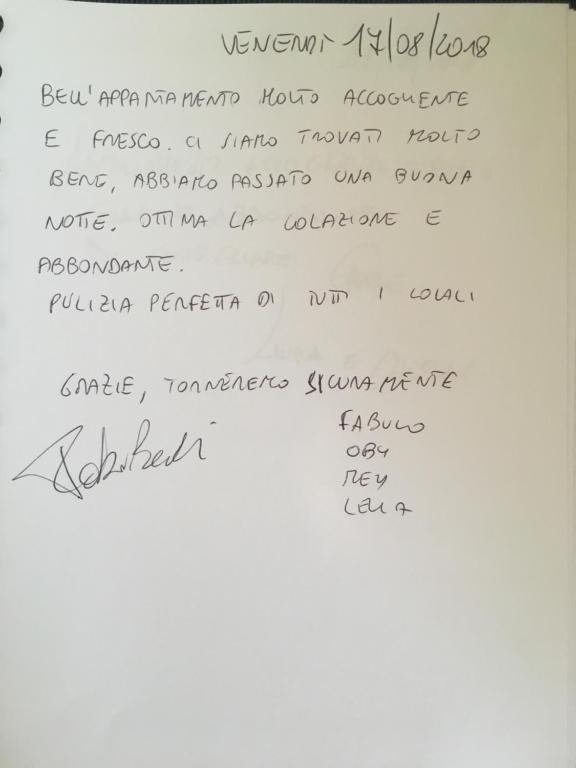 VENERDÌ 17/08/2018
BELL'APPARTAMENTO MOLTO ACCOGLIENTE
E FRESCO. CI SIAMO TROVATI MOLTO
BENE, ABBIAMO PASSATO UNA BUONA
NOTTE. OTTIMA LA COLAZIONE E
ABBONDANTE.
PULIZIA PERFETTA DI TUTTI I LOCALI
GRAZIE, TORNEREMO SICURAMENTE
OBY
MEY
LELLA